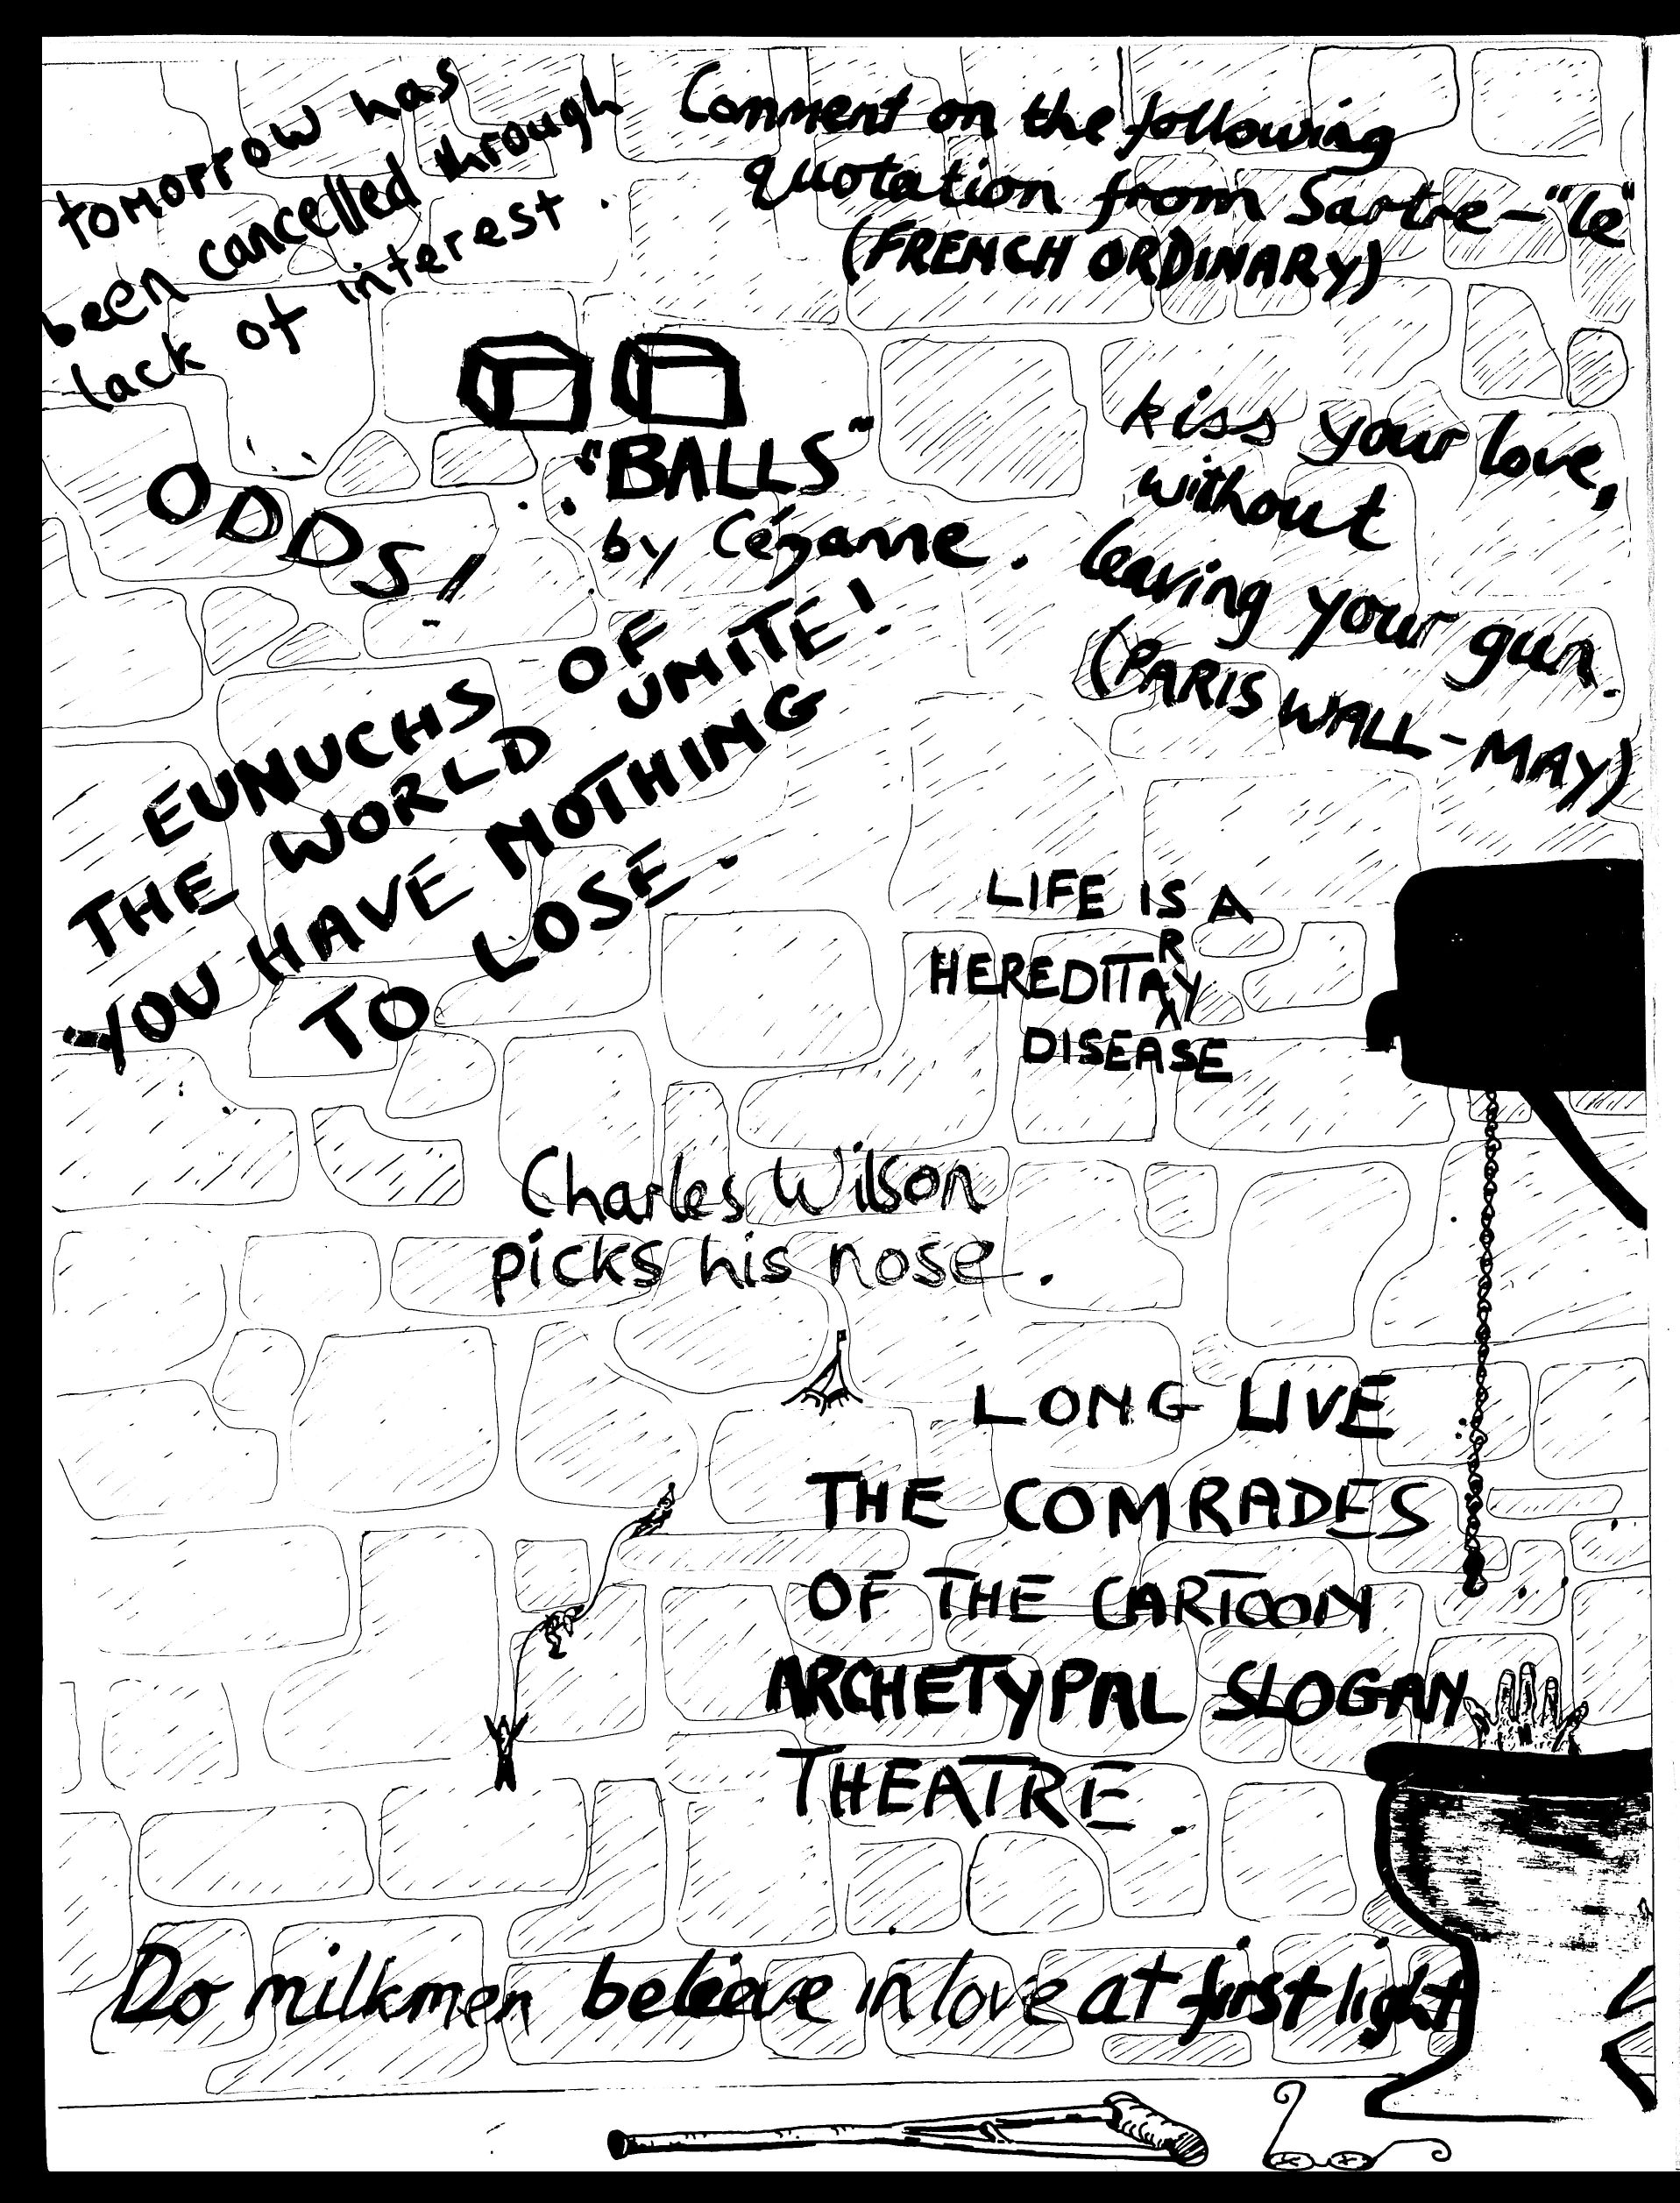 tomorrow has
been cancelled through
lack of interest.
Comment on the following
quotation from Sartre - "le"
(FRENCH ORDINARY)
"BALLS"
by Cézanne.
ODDS!
kiss your love,
without
leaving your gun.
(PARIS WALL - MAY)
EUNUCHS OF
THE WORLD UNITE!
YOU HAVE NOTHING
TO LOSE.
LIFE IS A
HEREDITARY
DISEASE
Charles Wilson
picks his nose.
LONG LIVE
THE COMRADES
OF THE CARTOON
ARCHETYPAL SLOGAN
THEATRE.
Do milkmen believe in love at first light